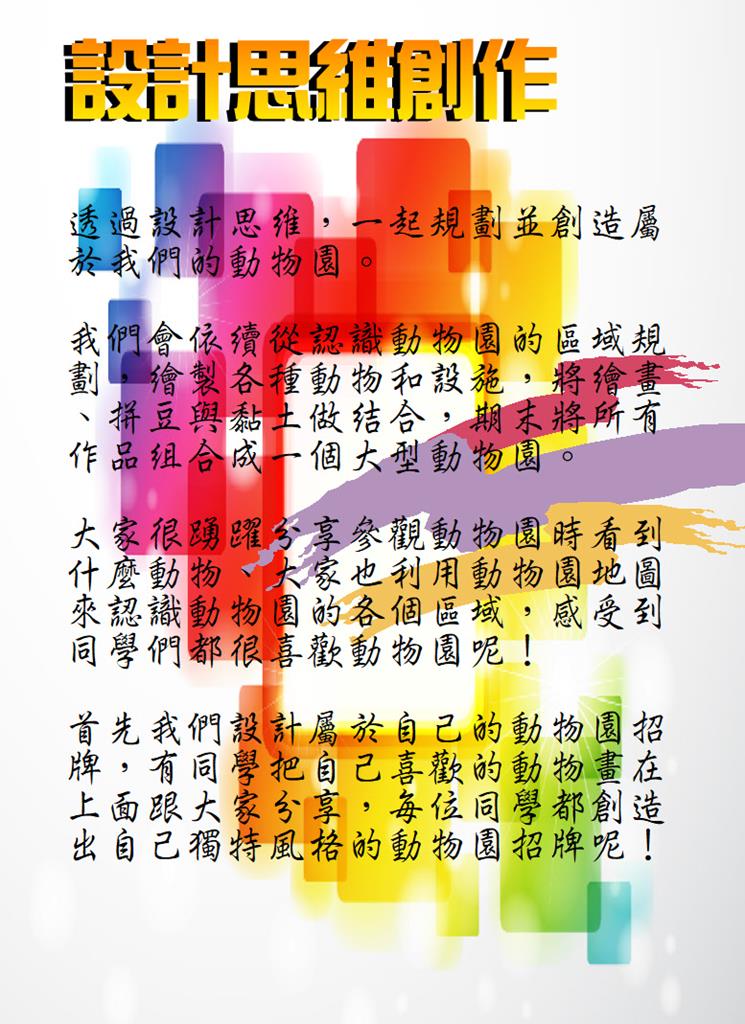 設計思維創作
透過設計思維，一起規劃並創造屬
於我們的動物園。
我們會依續從認識動物園的區域規
劃，繪製各種動物和設施，將繪畫
、拼豆與黏土做結合，期末將所有
作品組合成一個大型動物園。
大家很踴躍分享參觀動物園時看到
什麼動物、大家也利用動物園地圖
來認識動物園的各個區域，感受到
同學們都很喜歡動物園呢！
首先我們設計屬於自己的動物園招
牌，有同學把自己喜歡的動物畫在
上面跟大家分享，每位同學都創造
出自己獨特風格的動物園招牌呢！